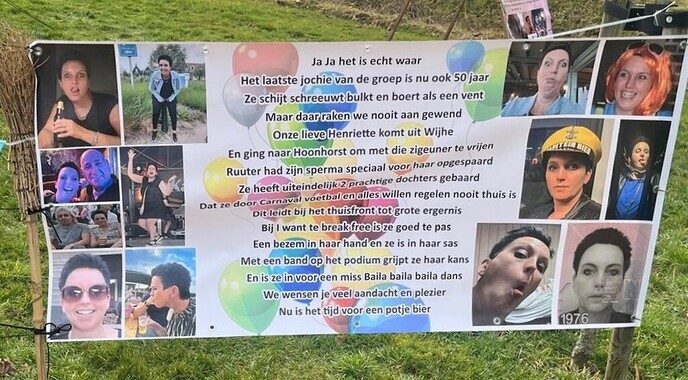 Ja Ja het is echt waar
Het laatste jochie van de groep is nu ook 50 jaar
Ze schijt schreeuwt bulkt en boert als een vent
Maar daar raken we nooit aan gewend
Onze lieve Henriette komt uit Wijhe
En ging naar Hoonhorst om met die zigeuner te vrijen
Ruuter had zijn sperma speciaal voor haar opgespaard
Ze heeft uiteindelijk 2 prachtige dochters gebaard
Dat ze door Carnaval voetbal en alles willen regelen nooit thuis is
Dit leidt bij het thuisfront tot grote ergernis
Bij I want te break free is ze goed te pas
Een bezem in haar hand en ze is in haar sas
Met een band op het podium grijpt ze haar kans
En is ze in voor een miss Baila baila baila dans
We wensen je veel aandacht en plezier
Nu is het tijd voor een potje bier
1976